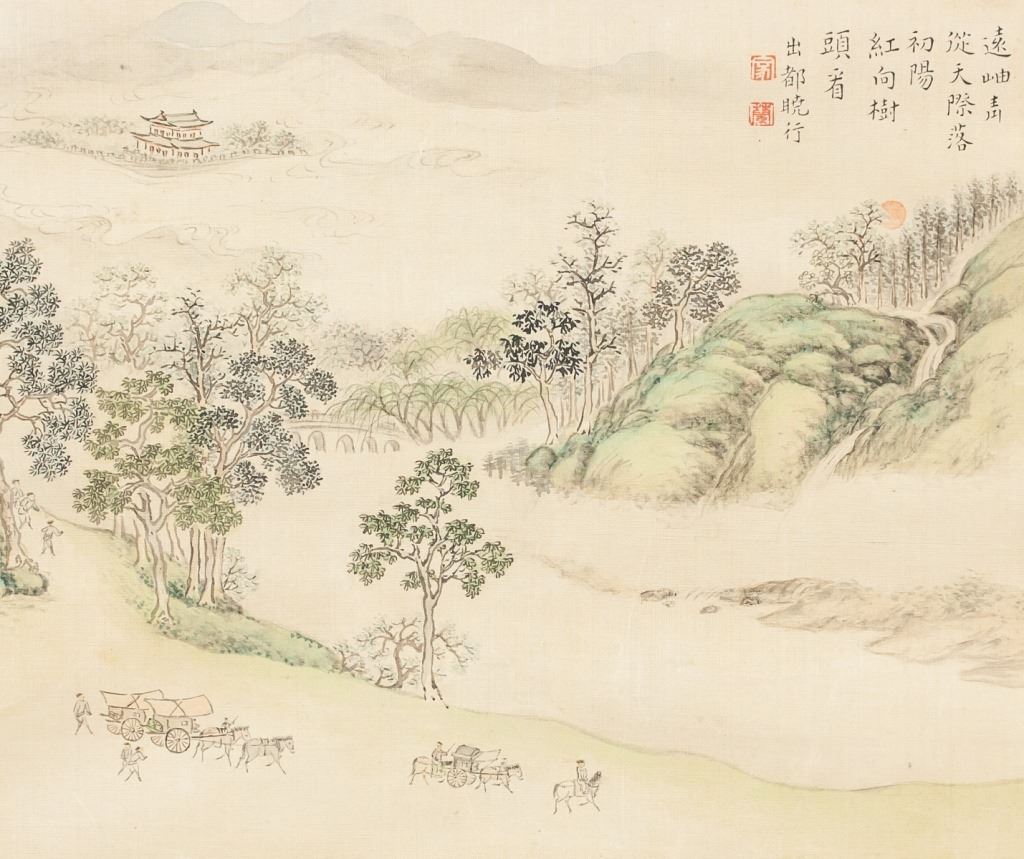 遠岫青
從天際落
初陽
紅向樹
頭看
出都曉行